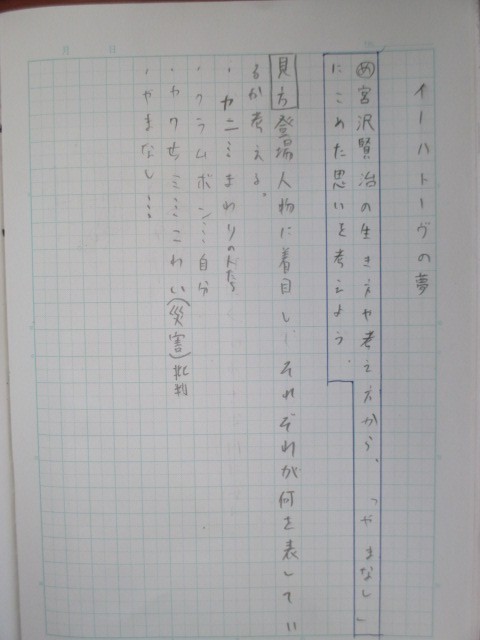 イーハトーヴの夢
め 宮沢賢治の生き方や考え方から、「やまなし」
にこめた思いを考えよう。
見方 登場人物に着目し、それぞれが何を表してい
るか考える。
・カニ…まわりの人たち
・クラムボン…自分
・カワセミ…こわい(災害)批判
・やまなし…
月 日